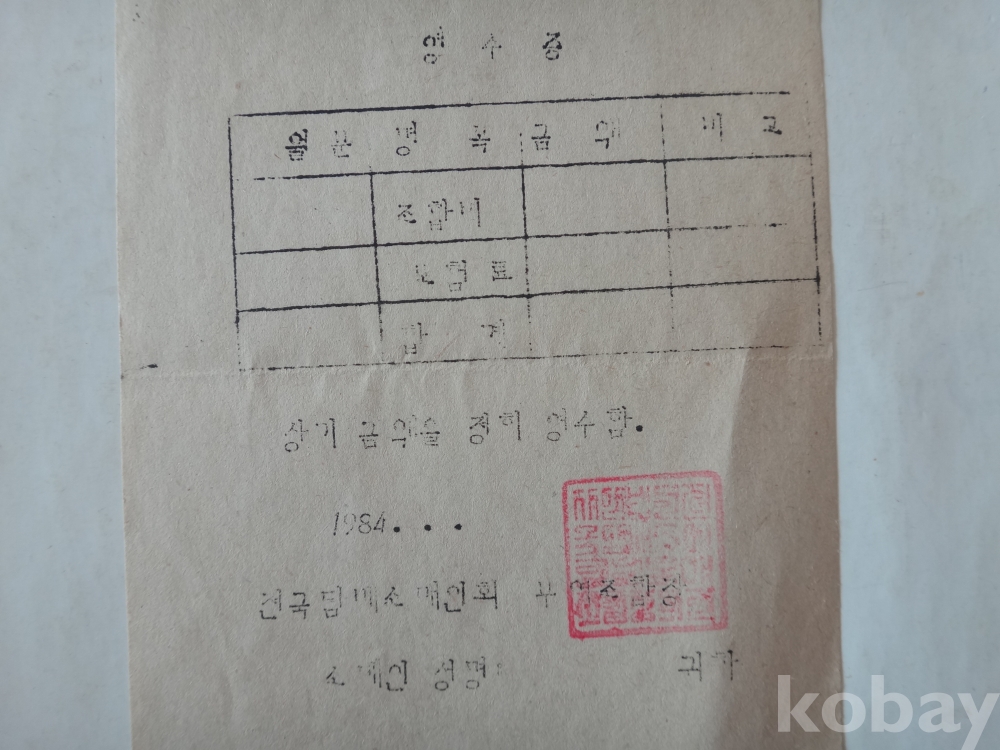 영 수 증
명 목 금 액 비 고
조합비
보험료
합 계
상기 금액을 정히 영수함.
1984. . .
전국담배소매인회 조합장
소매인 성명: 귀하
kobay